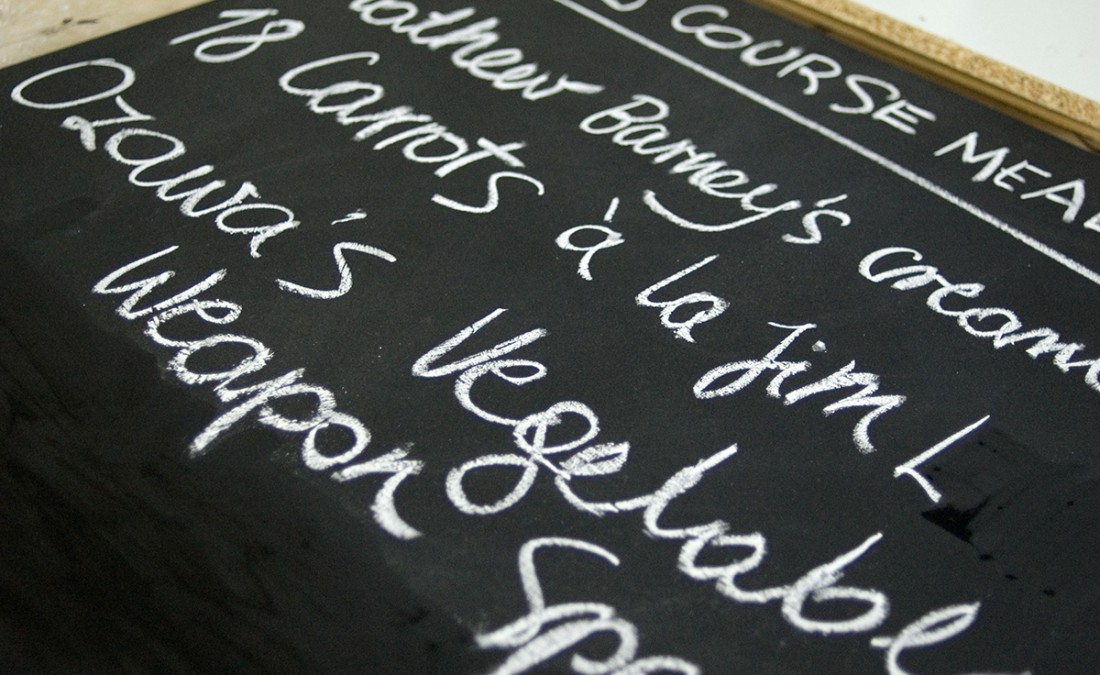 COURSE MEAL
Mathew Barney's cream
18 Carrots à la Jim L
Ozawa's Vegetable
Weapon